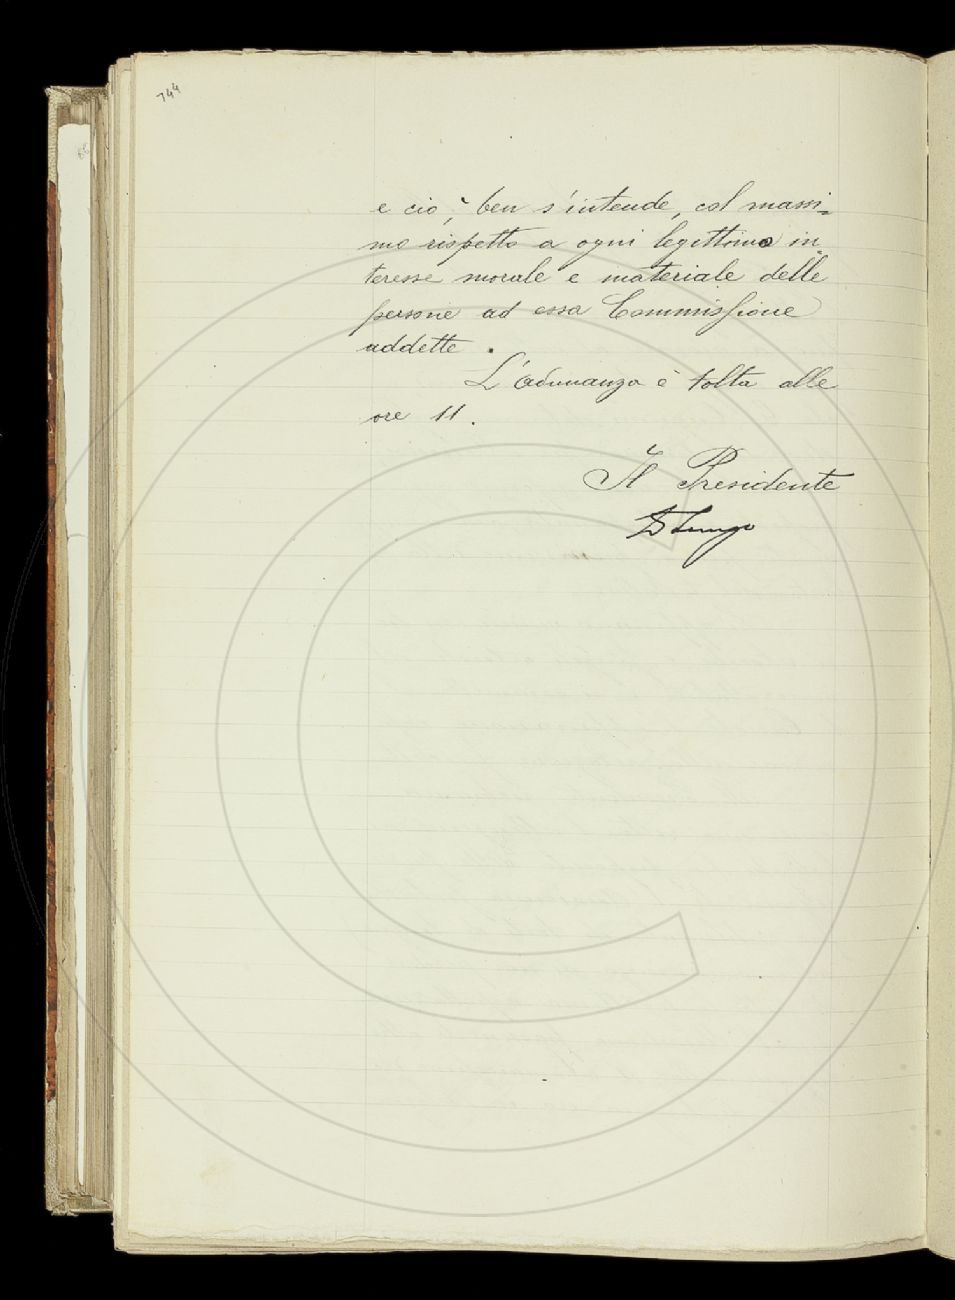 744
e ciò, ben s'intende, col massi=
mo rispetto a ogni legittimo in=
teresse morale e materiale delle
persone ad essa Commissione
addette.
L'adunanza è tolta alle
ore 11.
Il Presidente